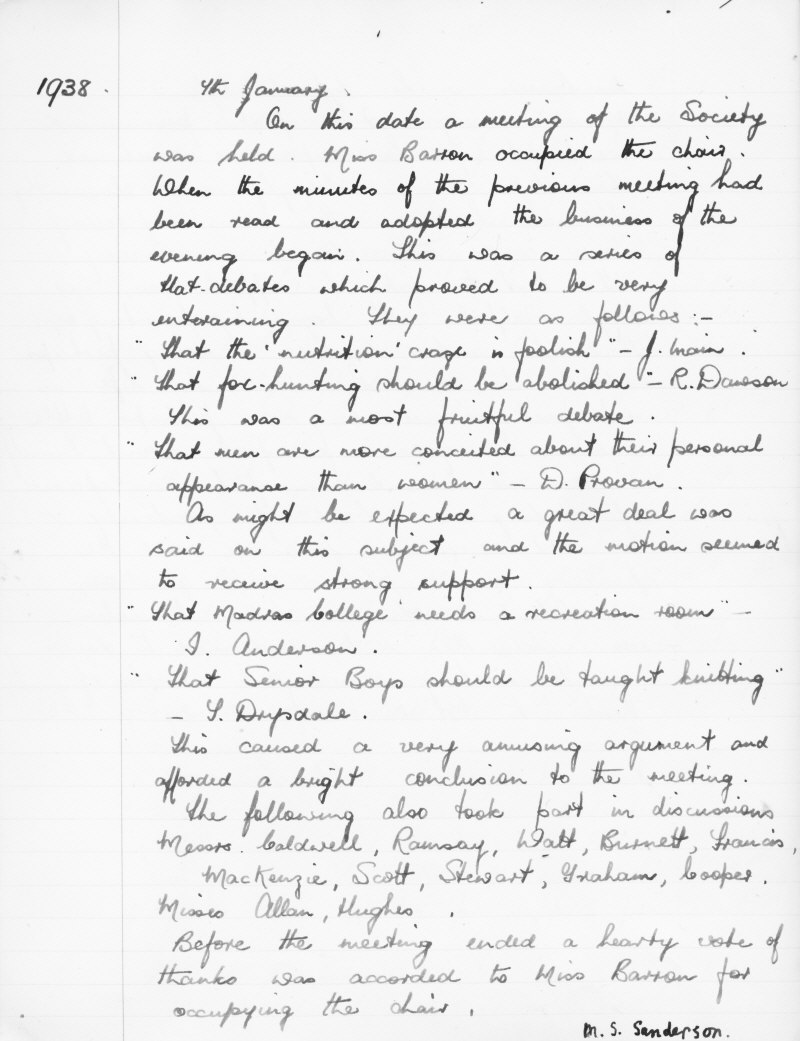 1938. 4th January.
On this date a meeting of the Society
was held. Miss Barron occupied the chair.
When the minutes of the previous meeting had
been read and adopted the business of the
evening began. This was a series of
Hat-debates which proved to be very
enteraining. They were as follows:-
"That the 'nutrition' craze is foolish" - J. Main.
"That fox-hunting should be abolished" - R. Dawson
This was a most fruitful debate.
"That men are more conceited about their personal
appearance than women" - D. Provan.
As might be expected a great deal was
said on this subject and the motion seemed
to receive strong support.
"That Madras College needs a recreation room" -
I. Anderson.
"That Senior Boys should be taught knitting"
- S. Drysdale.
This caused a very amusing argument and
afforded a bright conclusion to the meeting.
The following also took part in discussions
Messrs. Caldwell, Ramsay, Watt, Burnett, Francis,
MacKenzie, Scott, Stewart, Graham, Cooper.
Misses Allan, Hughes.
Before the meeting ended a hearty vote of
thanks was accorded to Miss Barron for
occupying the chair.
M. S. Sanderson.